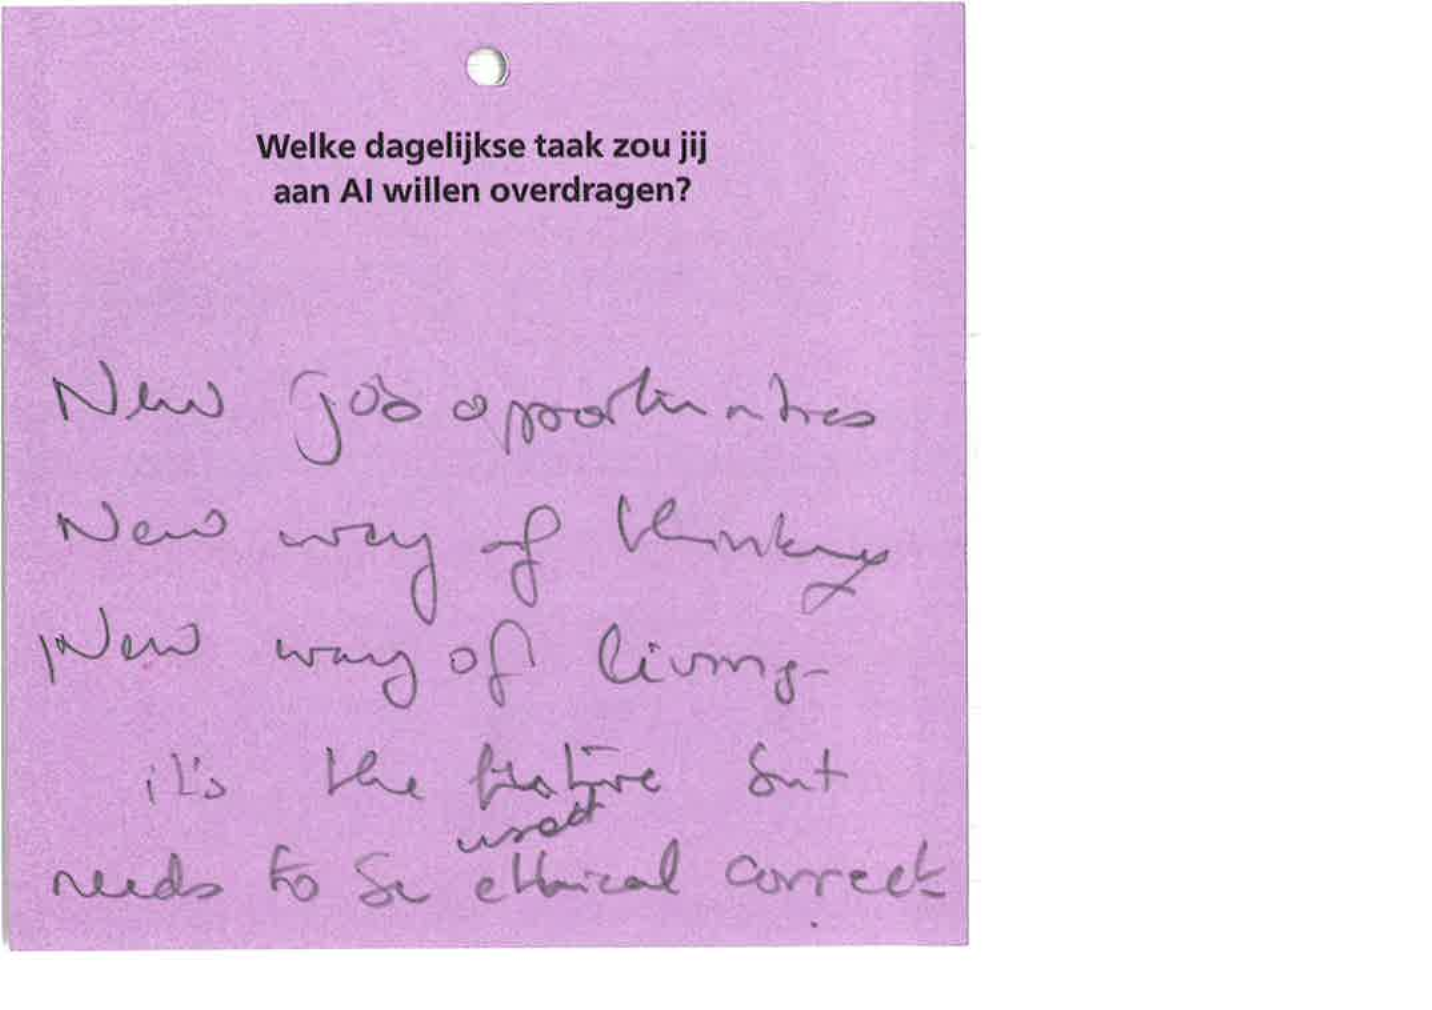 Welke dagelijkse taak zou jij
aan AI willen overdragen?
New job opportunities
New way of thinking
New way of living
it's the future but
used
needs to be ethical correct.